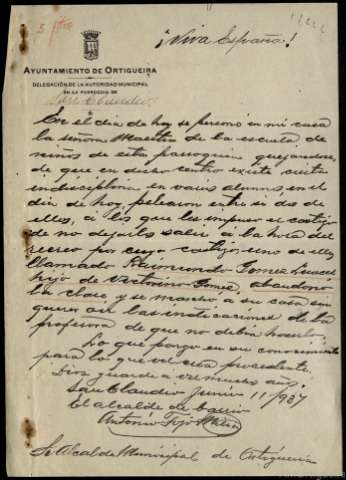 ¡Viva España!
AYUNTAMIENTO DE ORTIGUEIRA
DELEGACIÓN DE LA AUTORIDAD MUNICIPAL
EN LA PARROQUIA DE
San Claudio
En el dia de hoy se personó en mi casa
la señora Maestra de la escuela de
niños de esta parroquia quejandose,
de que en dicho centro existe cierta
indisciplina en varios alumnos en el
dia de hoy pelearon entre si dos de
ellos, á los que les impuso el castigo
de no dejarles salir á la hora del
recreo por cuyo castigo, uno de ellos
llamado Raimundo Gomez
hijo de Victorino Gomez, abandono
la clase, y se marcho a su casa sin
querer oir las indicaciones de la
profesora de que no debia hacerlo.
Lo que pongo en su conocimiento
para lo que vd crea procedente.
Dios guarde a vd muchos años.
San Claudio Junio 11/937
El alcalde de barrio
Antonio
Sr Alcalde Municipal de Ortigueira